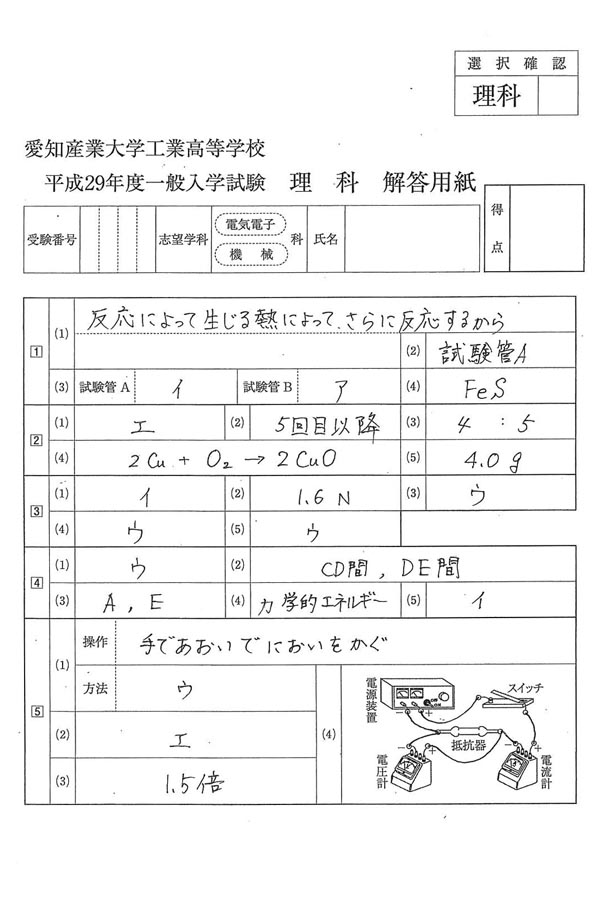 選択確認
理科
愛知産業大学工業高等学校
平成29年度一般入学試験 理科 解答用紙
得点
受験番号 志望学科 電気電子 機械 科 氏名
1 (1) 反応によって生じる熱によって、さらに反応するから
(2) 試験管A
(3) 試験管A イ 試験管B ア (4) FeS
2 (1) エ (2) 5回目以降 (3) 4 : 5
(4) 2Cu + O₂ → 2CuO (5) 4.0g
3 (1) イ (2) 1.6 N (3) ウ
(4) ウ (5) ウ
4 (1) ウ (2) CD間, DE間
(3) A, E (4)力学的エネルギー (5) イ
5 (1) 操作 手であおいでにおいをかぐ
方法 ウ
(2) エ
(3) 1.5倍
(4) 電源装置 スイッチ
ON
− +
抵抗器
− + − +
電圧計 電流計